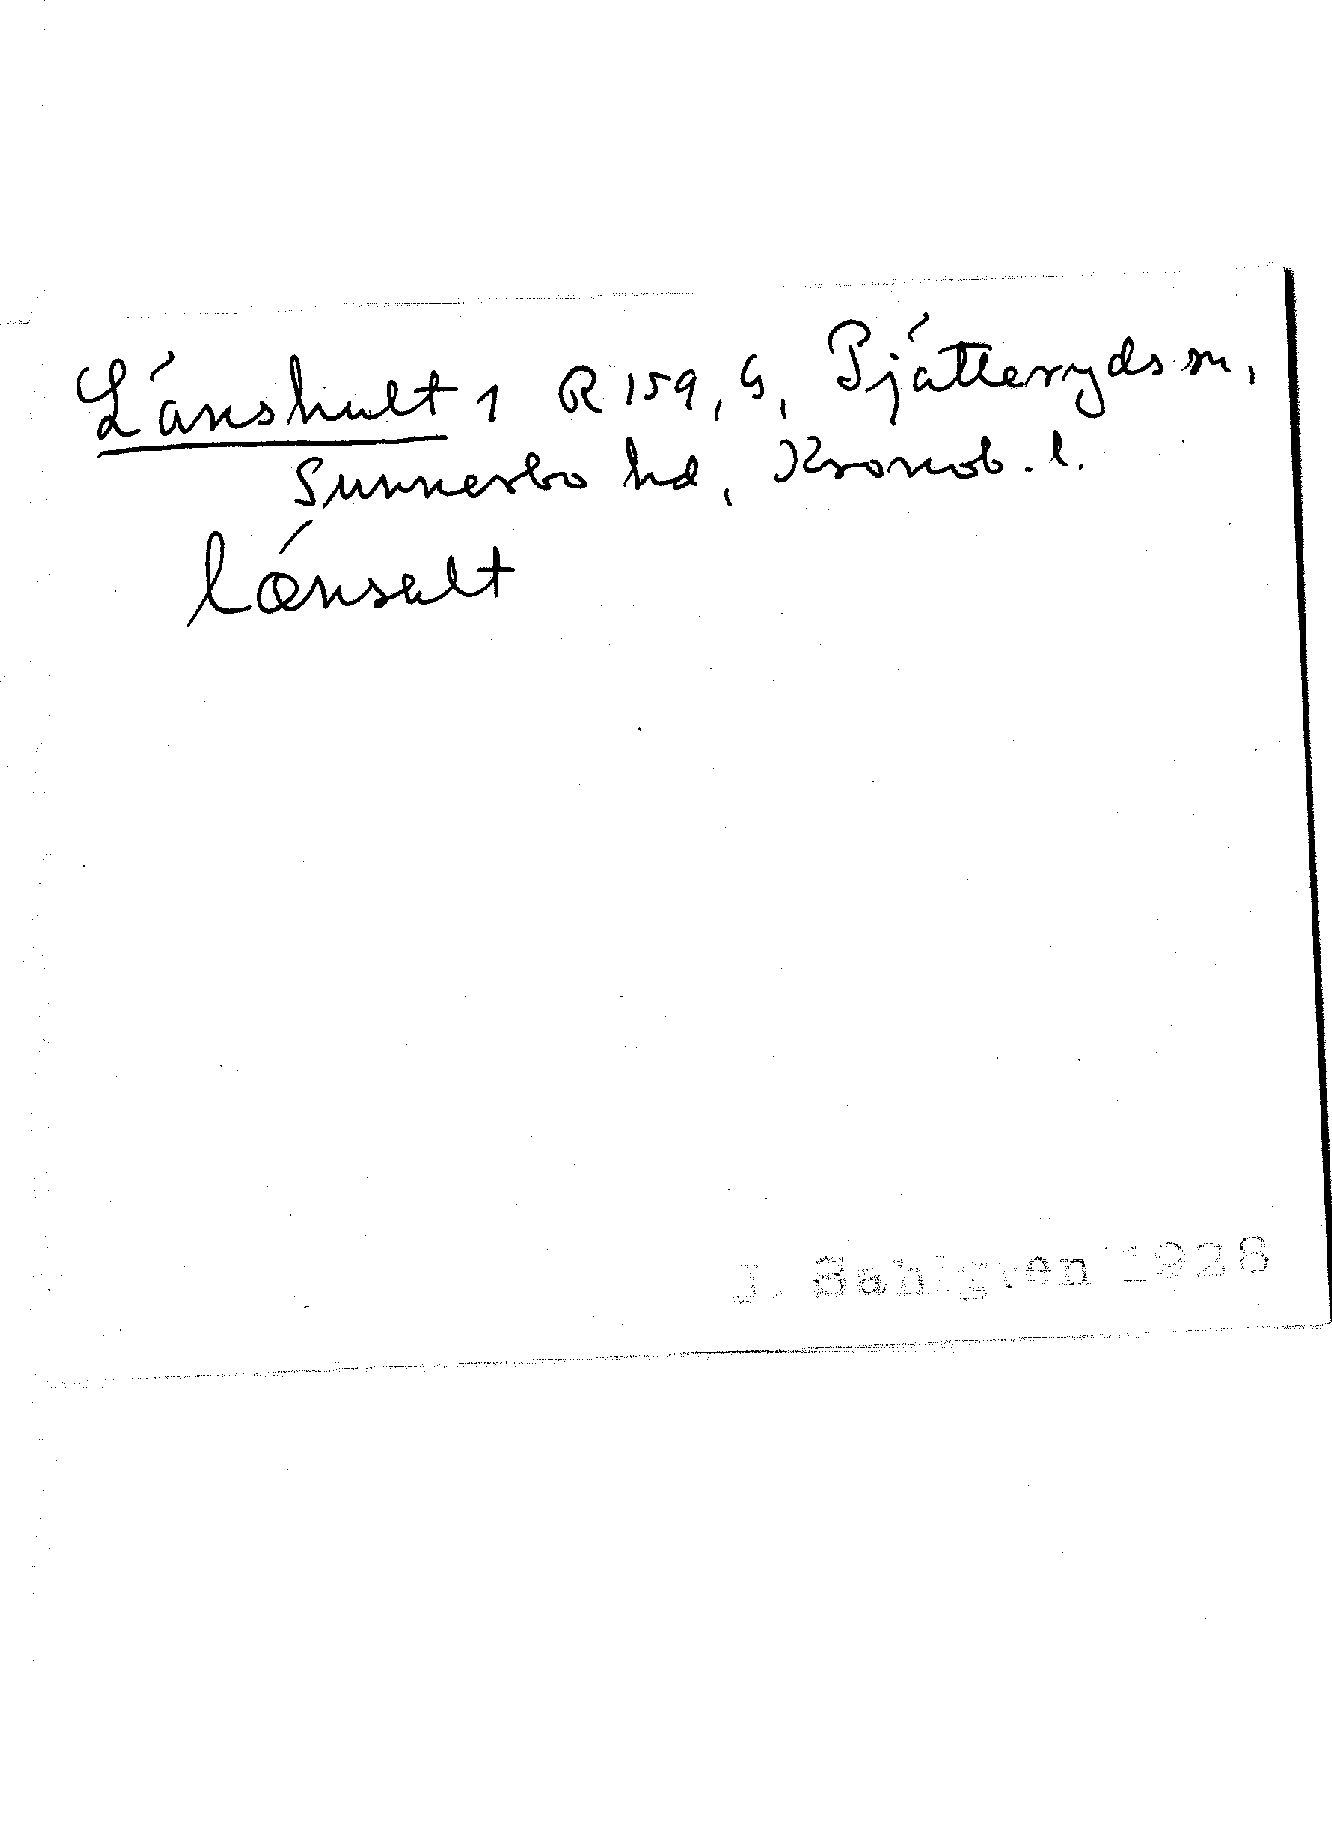 Länshult 1 R 159, G, Pjätteryds sn,
Sunnerbo hd, Kronob. l.
lǽnsult
J. Sahlgren 1928